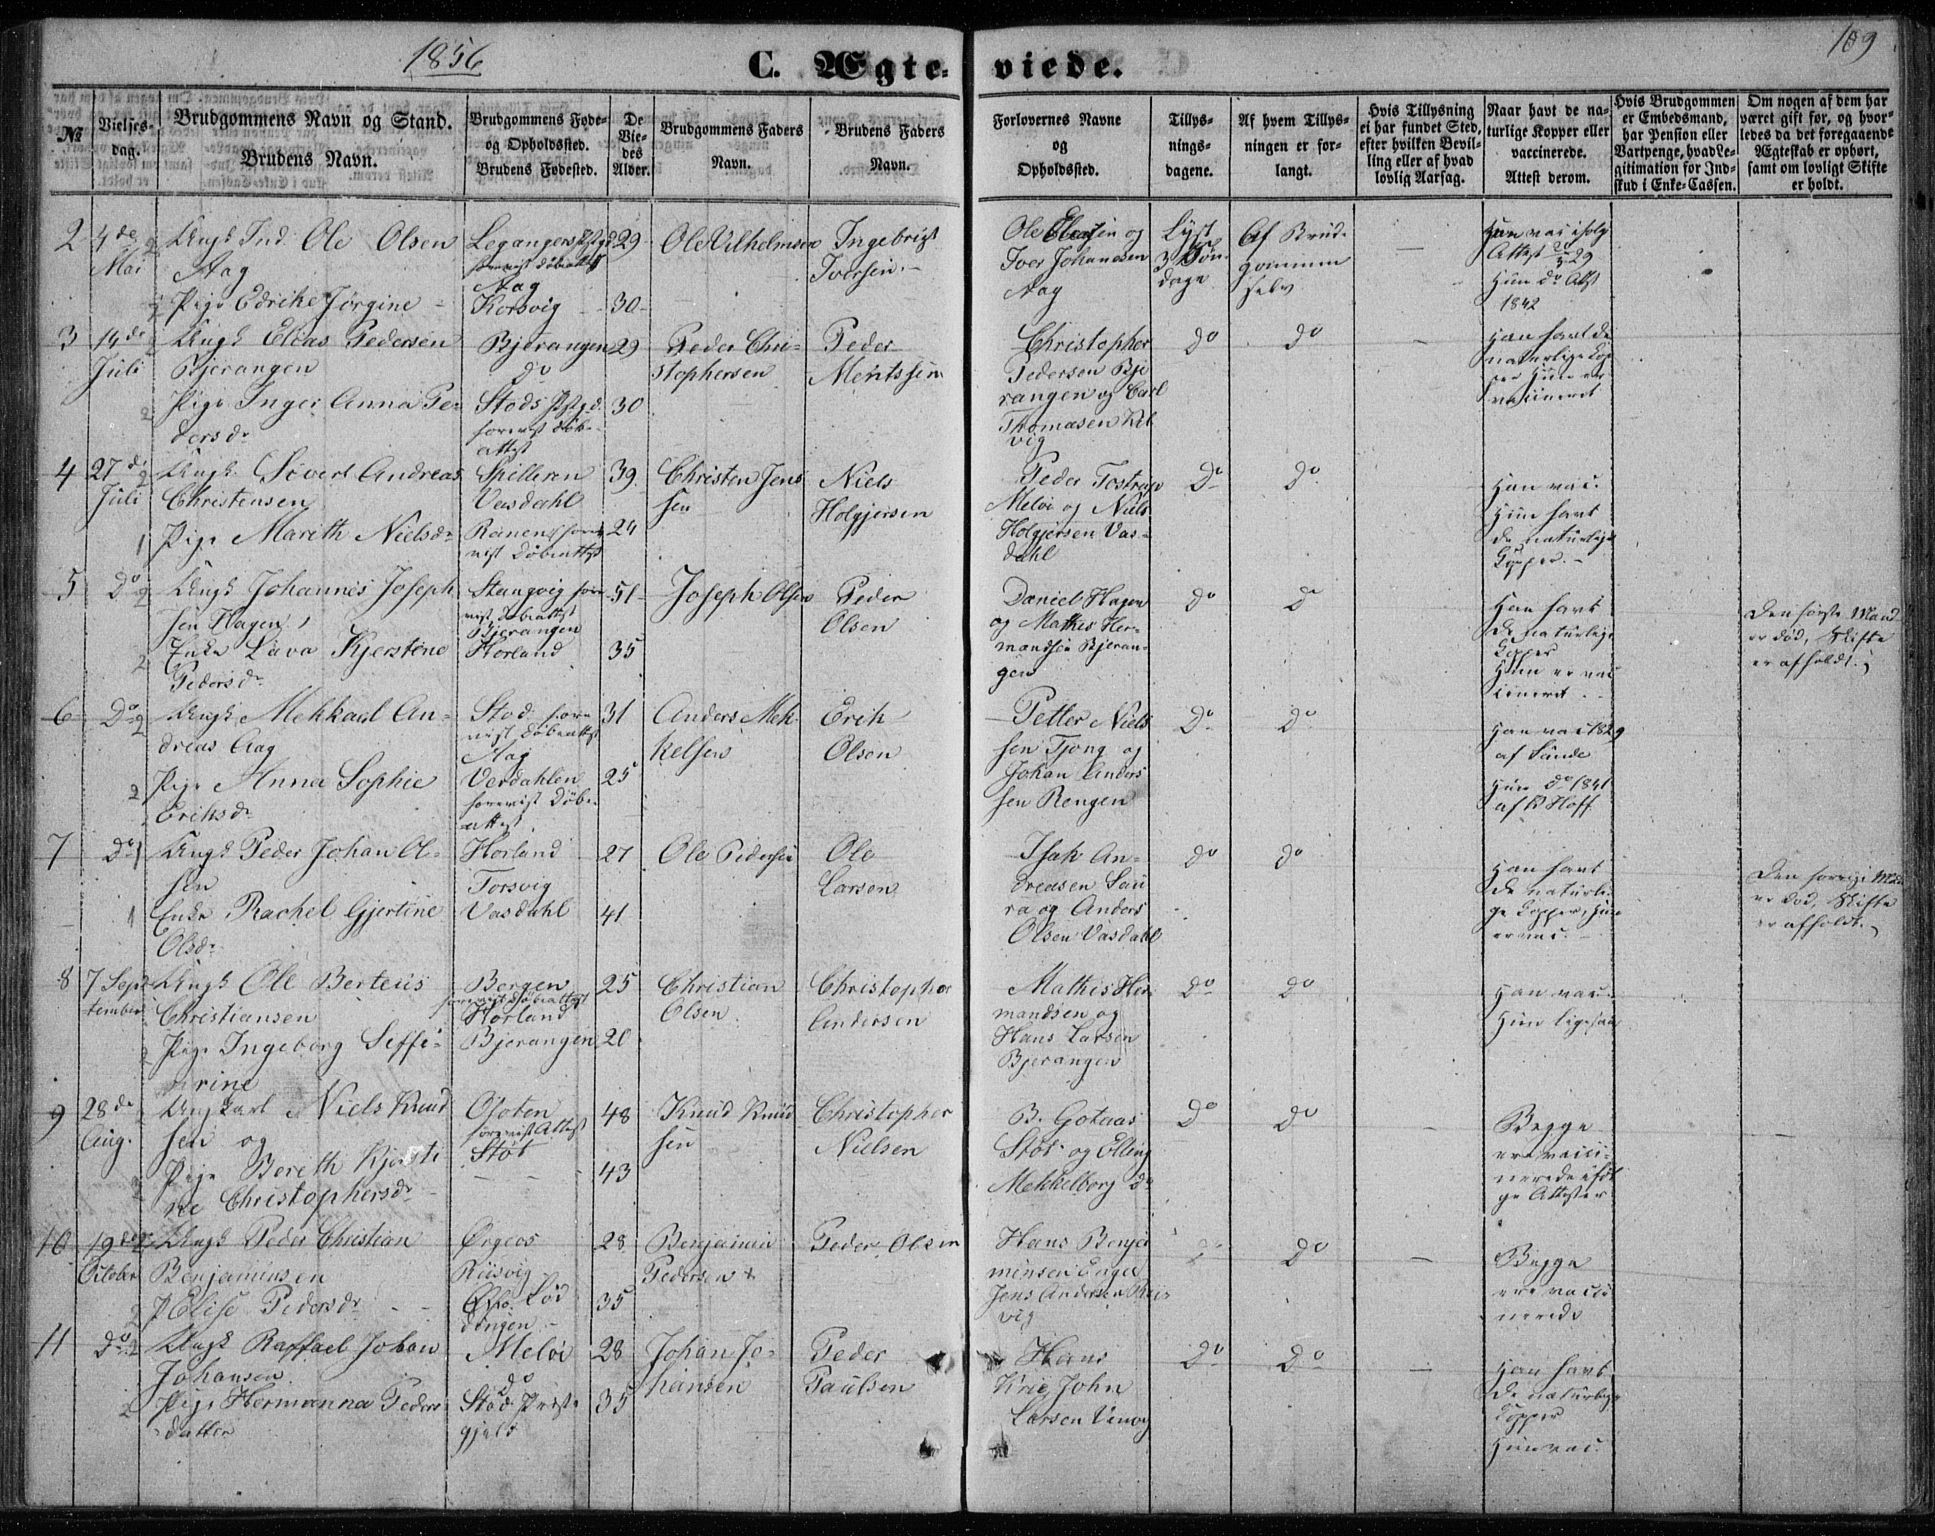 1856
109
C. Ægteviede.
№
Vielses-
dag.
Brudgommens Navn og Stand.
Brudens Navn.
Brudgommens Føde-
og Opholdssted.
Brudens Fødested.
De
Vie-
des
Alder.
Brudgommens Faders
Navn.
Brudens Faders
Navn.
Forlovernes Navne
og
Opholdssted.
Tillys-
nings-
dagene.
Af hvem Tillys-
ningen er for-
langt.
Hvis Tillysning
ei har fundet Sted,
efter hvilken Bevil-
ling eller af hvad
lovlig Aarsag.
Naar havt de na-
turlige Kopper eller
vaccinerede.
Attest derom.
Hvis Brudgommen
er Embedsmand,
har Pension eller
Vartpenge, hvad Le-
gitimation for Ind-
skud i Enke-Cassen.
Om nogen af dem har
været gift før, og hvor-
ledes da det foregaaende
Ægteskab er ophørt,
samt om lovligt Skifte
er holdt.
2
4de
Mai
Ungk Ind. Ole Olsen
Aag
Pige Edrike Jørgine
Legangers Pstgd
forevist Døbeattest
Aag
Korsvig
29
30
Ole Vilhelmsen
Ingebrigt
Iversen
Ole
og
Iver Johannesen
Aag
Lyst
3 Søn-
dage
Af Brud-
gommen
selv
Han vac ifølg
Attest 29
Hun do Atst
1842
3
14de
Juli
Ungk Elias Pedersen
Bjerangen
Pige Inger Anna Pe-
dersdr
Bjerangen
do
Stods Pstgd.
forevist Døb-
attest
29
30
Peder Chri-
stophersen
Peder
Meritssen
Christopher
Pedersen Bje
rangen og Carl
Thomasen Kil
vig
do
do
Han havt de
naturlige Kop
per Hun er
vacineret
4
27de
Juli
Ungk. Sivert Andreas
Christensen
Pige Mareth Nielsdr
Spilleren
Vasdahl
Ranen fore-
vist Døbeattest
39
24
Christen Jens
sen
Niels
Holgjersen
Peder Tostrup
Meløi og Niels
Holgjersen Vas-
dahl
Do
Do
Han vac.
Hun havt
de naturlige
Kopper.
5
Do
Ungk Johannes Joseph
sen Hagen
Enke Lava Kjerstine
Pedersdr
Stangvig fore
vist Døbeattest
Bjerangen
Horland
51
35
Joseph Olsen
Peder
Olsen
Daniel Hagen
og Mathis Her-
mandsen Bjeran-
gen
do
do
Han havt
de naturlige
Kopper
Hun er vac
cineret
Den første Mand
er død, Skifte
er afholdt.
6
Do
Ungk Mekkael An-
dreas Aag
Pige Anna Sophie
Eriksdr
Stod fore
vist Døbeattest
Aag
Verdahlen
forevist Døbe-
attest
31
25
Anders Mek-
kelsen
Erik
Olsen
Petter Niels
sen Tjong og
Johan Anders
sen Rengen
Do
Do
Han vac 1829
af Lunde
Hun do 1841
af Hoff
7
Do
Ungk Peder Johan Ol-
sen
Enke Rachel Gjertine
Olsdr
Horland
Torsvig
Vasdahl
27
41
Ole Pedersen
Ole
Larsen
Isak An-
dreasen Lau
ra og Anders
Olsen Vasdahl
do
do
Han havt
de naturli-
ge Kopper, Hun
er vac.
Den forrige Man
er død, Skifte
er afholdt.
8
7 Sep
tember
Ungk Ole Berteus
Christiansen
Pige Ingeborg Seffi-
nrine
Bergen
forevist Døbeattest
Horland
Bjerangen
25
20
Christian
Olsen
Christopher
Andersen
Mathis Her
mandsen og
Hans Larsen
Bjerangen
Do
do
Han vac.
Hun ligesaa
9
28de
Aug.
Ungkarl Niels Knud
sen og
Pige Bereth Kjersti
ne Christophersdr
Ofoten
forevist Attest
Støt
48
43
Knud Knud
sen
Christopher
Nielsen
B. Gotaas
Støt og Elling
Mekkelborg do
Do
do
Begge
ere vacci-
nerede iføl
ge Attester
10
19de
October
Ungk Peder Christian
Benjaminsen
P Elise Pedersdr
Ørgeos
Riisvig
Lød
dingen
28
35
Benjamin
Pedersen
Peder Olsen
Hans Benja
minsen Engel
Jens Andersen Riis
vig
Do
Do
Begge
ere vacci
nerede
11
Do
Ungk Raffael Johan
Johansen
Pige Hermanna Peders
datter
Meløi
do
Stods Præste
gjeld
28
35
Johan Jo-
hansen
Peder
Paulsen
Hans
John
Larsen
Do
Do
Han havt
de naturlige
Kopper
Hun vac.